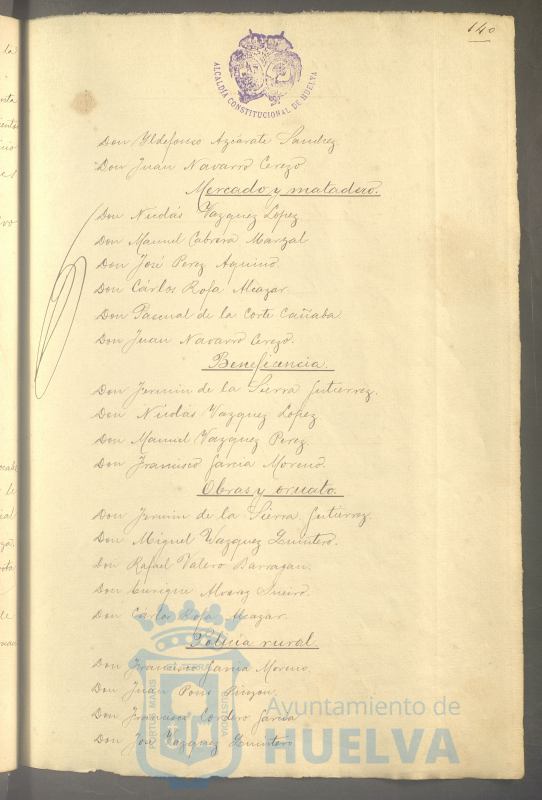 140
ALCALDÍA CONSTITUCIONAL DE HUELVA
Don Yldefonso Azcárate Sanchez
Don Juan Navarro Cerezo
Mercado y matadero.
Don Nicolás Vazquez Lopez
Don Manuel Cabrera Marzal
Don José Perez Aquino
Don Cárlos Rofa Alcazar
Don Pascual de la Corte Cañaba
Don Juan Navarro Cerezo.
Beneficencia.
Don Fermin de la Sierra Gutierrez.
Don Nicolás Vazquez Lopez
Don Manuel Vazquez Perez
Don Francisco Garcia Moreno.
Obras y ornato.
Don Fermin de la Sierra Gutierrez.
Don Miguel Vazquez Quintero.
Don Rafael Valero Barragan.
Don Enrique Alvarez
Don Cárlos Rofa Alcazar.
Policía rural.
Don Francisco Garcia Moreno.
Don Juan Pons Pinzon.
Don Francisco Cordero Garcia
Don José Vazquez Quintero
Ayuntamiento de
HUELVA